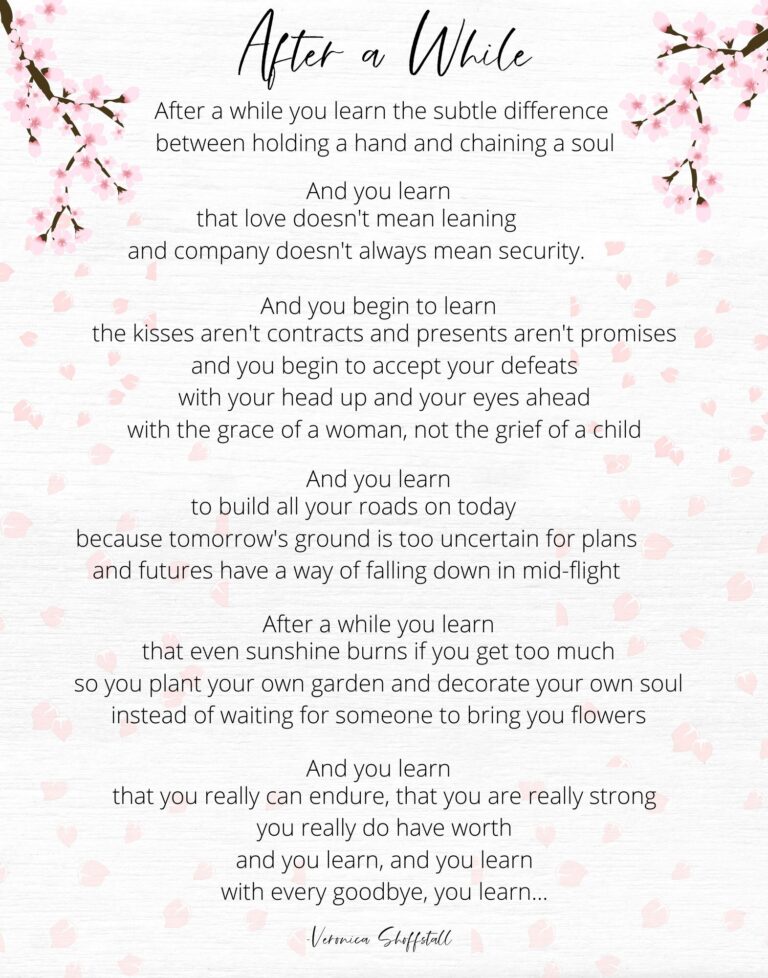 After a While
After a while you learn the subtle difference
between holding a hand and chaining a soul
And you learn
that love doesn't mean leaning
and company doesn't always mean security.
And you begin to learn
the kisses aren't contracts and presents aren't promises
and you begin to accept your defeats
with your head up and your eyes ahead
with the grace of a woman, not the grief of a child
And you learn
to build all your roads on today
because tomorrow's ground is too uncertain for plans
and futures have a way of falling down in mid-flight
After a while you learn
that even sunshine burns if you get too much
so you plant your own garden and decorate your own soul
instead of waiting for someone to bring you flowers
And you learn
that you really can endure, that you are really strong
you really do have worth
and you learn, and you learn
with every goodbye, you learn...
-Veronica Shoffstall